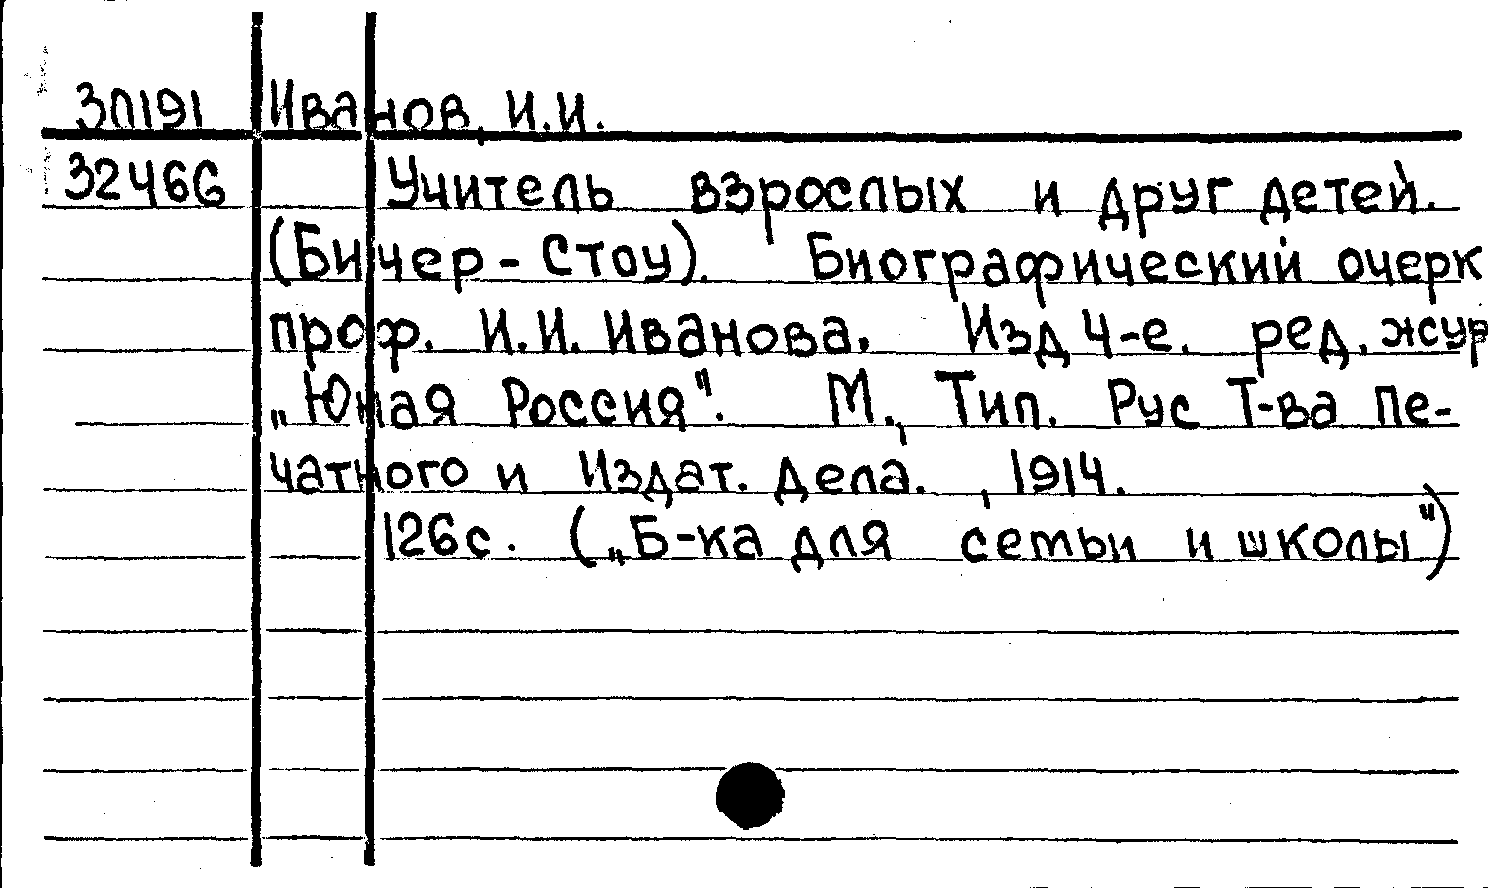 30191 Иванов, И.И.
32466 Учитель взрослых и друг детей.
(Бичер-Стоу). Биографический очерк
проф. И.И. Иванова. Изд 4-е. ред. жур
„Юная Россия". М., Тип. Рус Т-ва Пе-
чатного и Издат. Дела. , 1914.
126с. („Б-ка для семьи и школы")